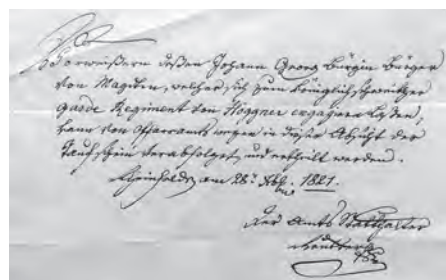 Vorweisern dessen Johann Georg Bürgin Bürger
von Magden, welcher sich zum Königlich Schweitzer
Garde Regiment von Höggner engagiren lassen,
kann von Pfarramts wegen in dieser Absicht der
Taufschein verabfolget, und ertheilt werden.
Rheinfelden am 28. 1821.
Der Amts Statthalter